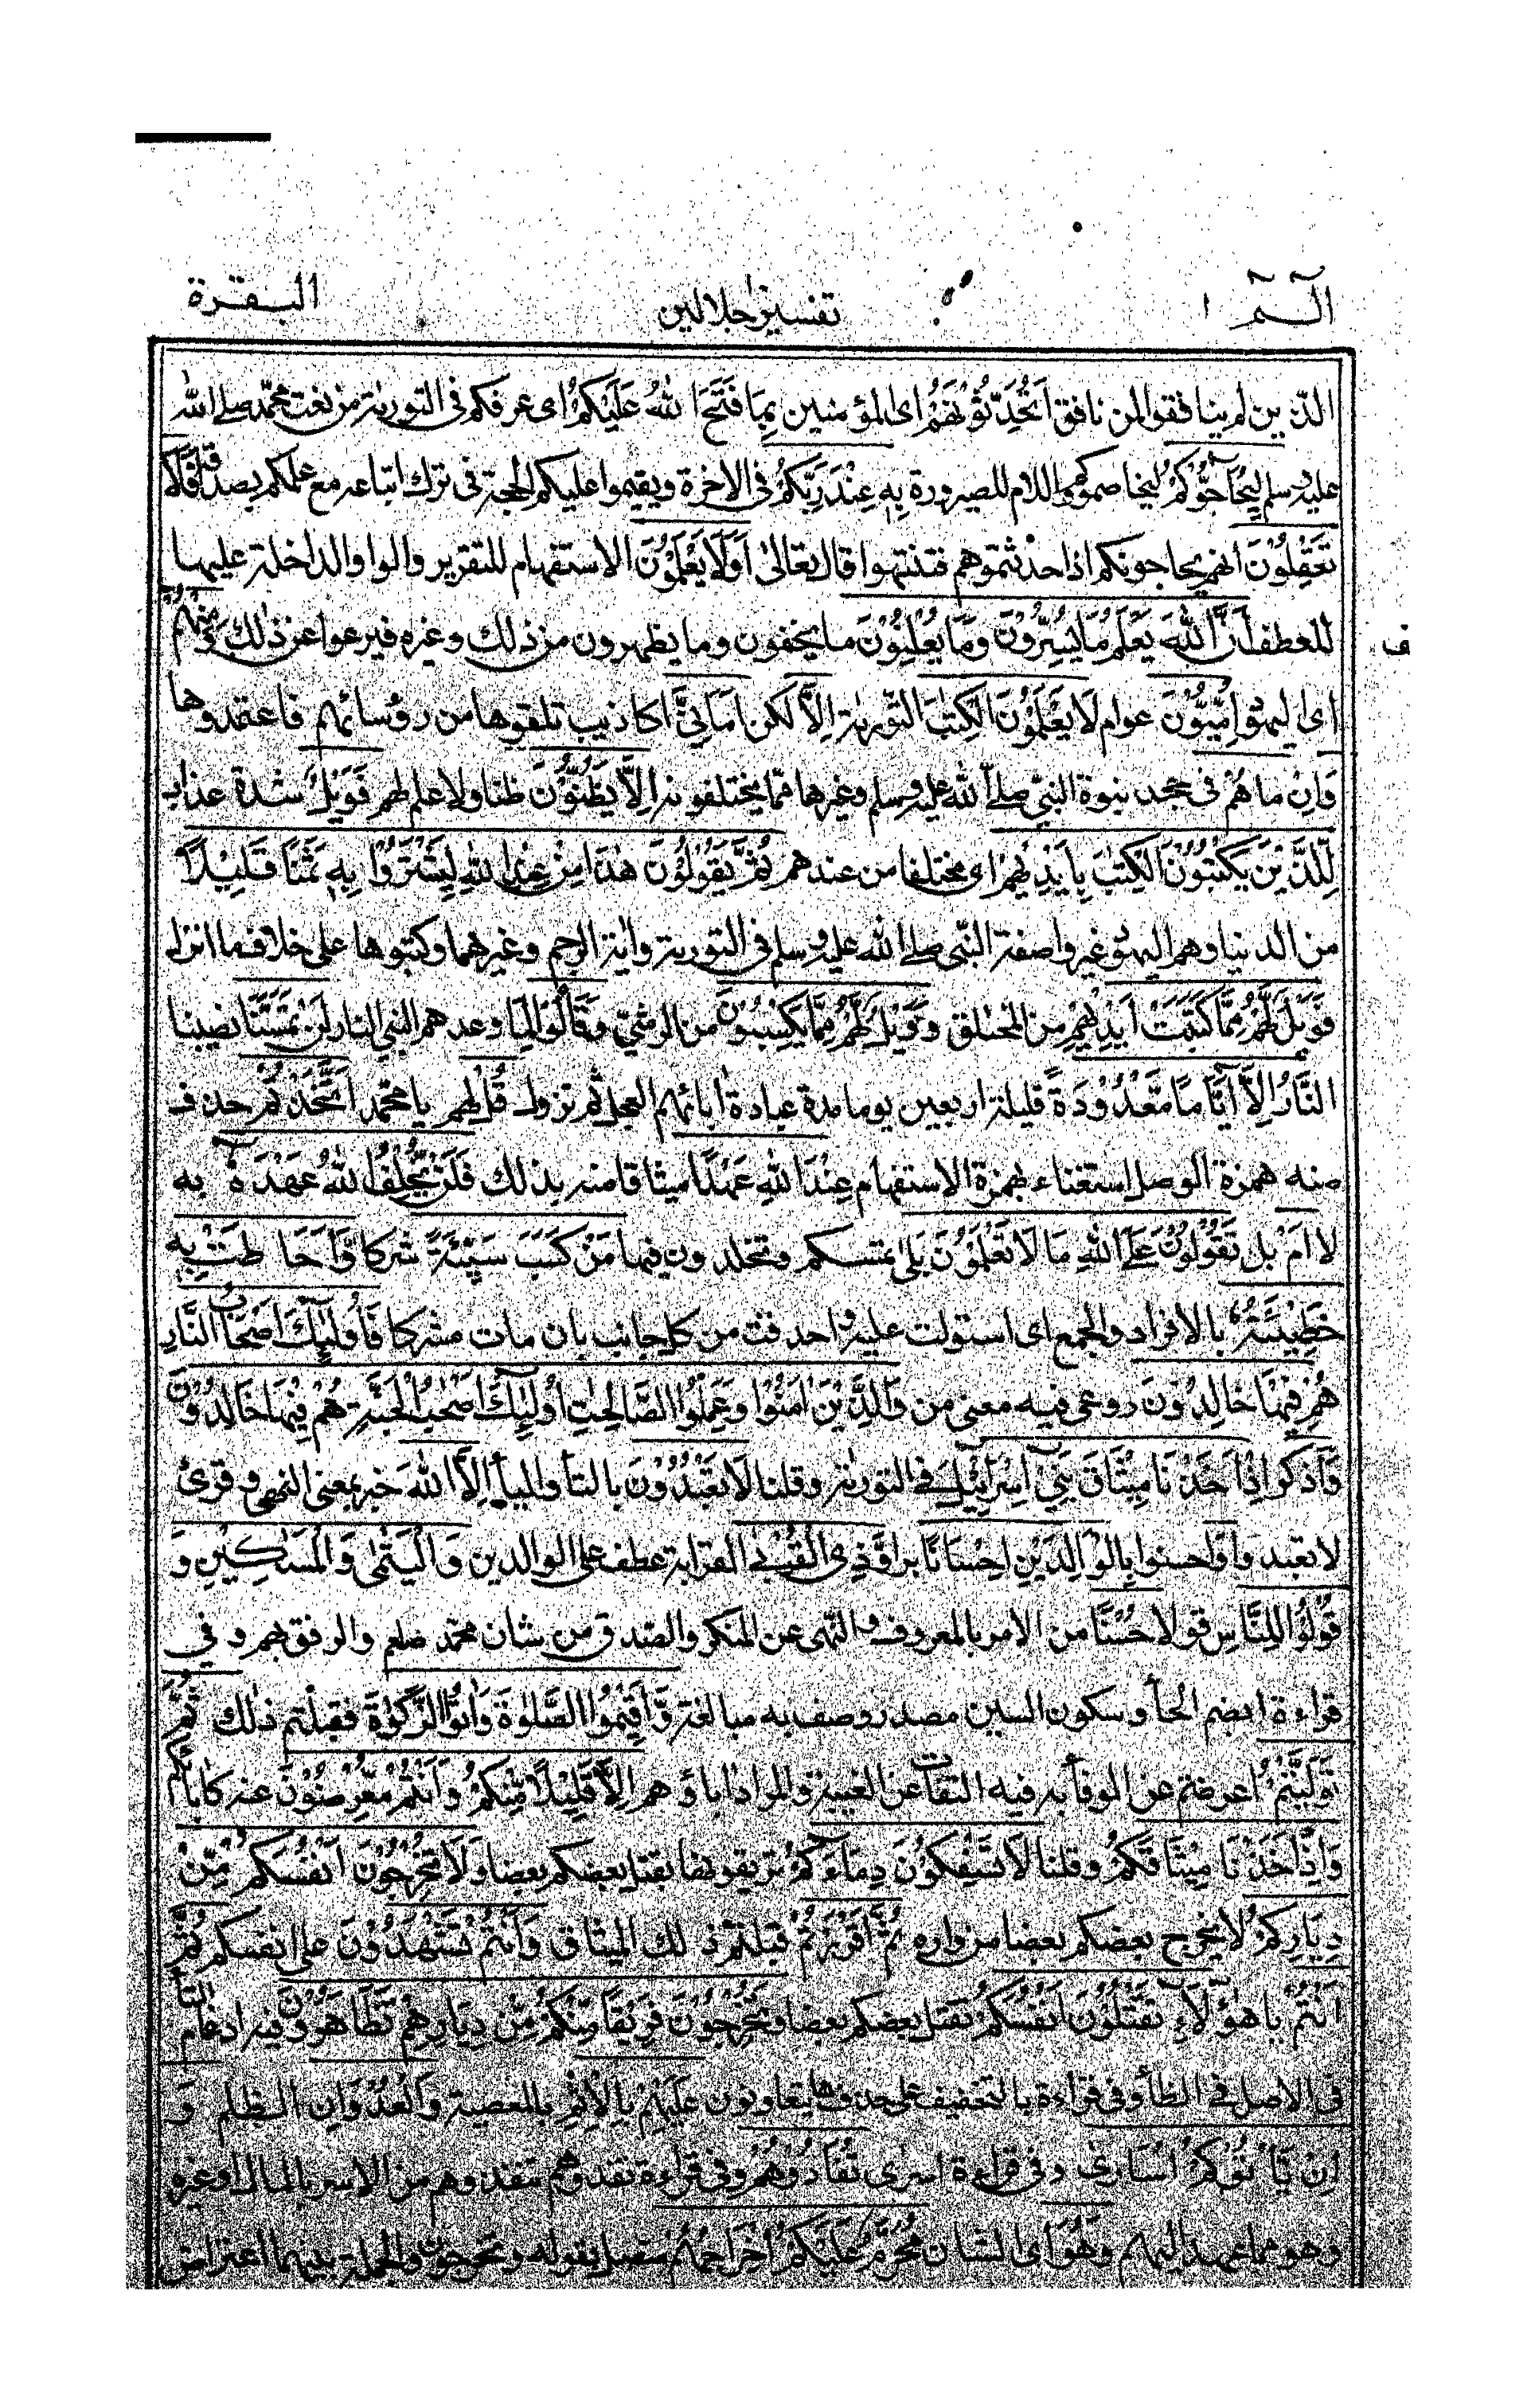 الٓـمّٓ ١ تفسير جلالين البقرة
الذين لم ينافقوا لمن نافق اَتُحَدِّثُوْنَهُمْ اى المؤمنين بِمَا فَتَحَ اللّٰهُ عَلَيْكُمْ اى عرفكم فى التورىة من نعت محمّد صلى الله
عليه وسلم لِيُحَآجُّوْكُمْ ليخاصموكم واللام للصيرورة بِهٖ عِنْدَ رَبِّكُمْ فى الاخرة ويقيموا عليكم الحجة فى ترك اتباعه مع علمكم بصدقه اَفَلَا
تَعْقِلُوْنَ انهم يحاجونكم اذا حدثتموهم فتنتهوا قال تعالىٰ اَوَلَا يَعْلَمُوْنَ الاستفهام للتقرير والواو الداخلة عليها
للعطف اَنَّ اللّٰهَ يَعْلَمُ مَا يُسِرُّوْنَ وَمَا يُعْلِنُوْنَ ما يخفون وما يظهرون من ذلك وغيره فيرعوا عن ذلك وَمِنْهُمْ
اى اليهود اُمِّيُّوْنَ عوام لَا يَعْلَمُوْنَ الْكِتٰبَ التورىة اِلَّا لكن اَمَانِيَّ اكاذيب تلقوها من رؤسائهم فاعتمدوها
وَاِنْ ما هُمْ فى جحد نبوة النبي صلى الله عليه وسلم وغيرها مما يختلقونه اِلَّا يَظُنُّوْنَ ظنا ولا علم لهم فَوَيْلٌ شدة عذاب
لِّلَّذِيْنَ يَكْتُبُوْنَ الْكِتٰبَ بِاَيْدِيْهِمْ اى مختلقا من عندهم ثُمَّ يَقُوْلُوْنَ هٰذَا مِنْ عِنْدِ اللّٰهِ لِيَشْتَرُوْا بِهٖ ثَمَنًا قَلِيْلًا
من الدنيا وهم اليهود غيروا صفة النبى صلى الله عليه وسلم فى التورية واية الرجم وغيرهما وكتبوها على خلاف ما انزل
فَوَيْلٌ لَّهُمْ مِّمَّا كَتَبَتْ اَيْدِيْهِمْ من المختلق وَوَيْلٌ لَّهُمْ مِّمَّا يَكْسِبُوْنَ من الرشى وَقَالُوْا لما وعدهم النبي النار لَنْ تَمَسَّنَا تصيبنا
النَّارُ اِلَّآ اَيَّامًا مَّعْدُوْدَةً قليلة اربعين يوما مدة عبادة اٰبائهم العجل ثم تزول قُلْ لهم يا محمد اَتَّخَذْتُمْ حذف
منه همزة الوصل استغناء بهمزة الاستفهام عِنْدَ اللّٰهِ عَهْدًا ميثاقا منه بذلك فَلَنْ يُّخْلِفَ اللّٰهُ عَهْدَهٗٓ به
لا اَمْ بل تَقُوْلُوْنَ عَلَى اللّٰهِ مَا لَا تَعْلَمُوْنَ بَلٰى تمسكم وتخلدون فيها مَنْ كَسَبَ سَيِّئَةً شركا وَّاَحَاطَتْ بِهٖ
خَطِيْٓئَتُهٗ بالافراد والجمع اى استولت عليه واحدقت من كل جانب بان مات مشركا فَاُولٰٓئِكَ اَصْحٰبُ النَّارِ
هُمْ فِيْهَا خَالِدُوْنَ روعى فيه معنى من وَالَّذِيْنَ اٰمَنُوْا وَعَمِلُوا الصَّالِحٰتِ اُولٰٓئِكَ اَصْحٰبُ الْجَنَّةِ هُمْ فِيْهَا خَالِدُوْنَ
وَاذكر اِذْ اَخَذْنَا مِيْثَاقَ بَنِيْٓ اِسْرَآئِيْلَ فى التورىة وقلنا لَا تَعْبُدُوْنَ بالتاء والياء اِلَّا اللّٰهَ خبر بمعنى النهى وقرئ
لا تعبدوا وَاحسنوا بِالْوَالِدَيْنِ اِحْسَانًا برا وَّذِى الْقُرْبٰى القرابة عطف على الوالدين وَالْيَتٰمٰى وَالْمَسٰكِيْنِ وَ
قُوْلُوْا لِلنَّاسِ قولا حُسْنًا من الامر بالمعروف والنهى عن المنكر والصدق من شان محمد صلعم والرفق بهم وفي
قراءة بضم الحاء وسكون السين مصدر وصف به مبالغة وَّاَقِيْمُوا الصَّلٰوةَ وَاٰتُوا الزَّكٰوةَ فقبلتم ذلك ثُمَّ
تَوَلَّيْتُمْ اعرضتم عن الوفاء به فيه التفات عن الغيبة والمراد اٰباؤهم اِلَّا قَلِيْلًا مِّنْكُمْ وَاَنْتُمْ مُّعْرِضُوْنَ عنه كاٰبائكم
وَاِذْ اَخَذْنَا مِيْثَاقَكُمْ وقلنا لَا تَسْفِكُوْنَ دِمَآءَكُمْ تريقونها بقتل بعضكم بعضا وَلَا تُخْرِجُوْنَ اَنْفُسَكُمْ مِّنْ
دِيَارِكُمْ لا يخرج بعضكم بعضا من داره ثُمَّ اَقْرَرْتُمْ قبلتم ذلك الميثاق وَاَنْتُمْ تَشْهَدُوْنَ على انفسكم ثُمَّ
اَنْتُمْ يا هٰٓؤُلَآءِ تَقْتُلُوْنَ اَنْفُسَكُمْ بقتل بعضكم بعضا وَتُخْرِجُوْنَ فَرِيْقًا مِّنْكُمْ مِّنْ دِيَارِهِمْ تَظَّاهَرُوْنَ فيه ادغام التاء
فى الاصل فى الظاء وفى قراءة بالتخفيف على حذفها تتعاونون عَلَيْهِمْ بِالْاِثْمِ بالمعصية وَالْعُدْوَانِ الظلم وَ
اِنْ يَّاْتُوْكُمْ اُسَارٰى وفى قراءة اسرى تُفَادُوْهُمْ وفى قراءة تفدوهم تنقذوهم من الاسر بالمال او غيره
وهو مما عهد اليهم وَهُوَ اى الشان مُحَرَّمٌ عَلَيْكُمْ اِخْرَاجُهُمْ متصل بقوله وتخرجون والجملة بينهما اعتراض